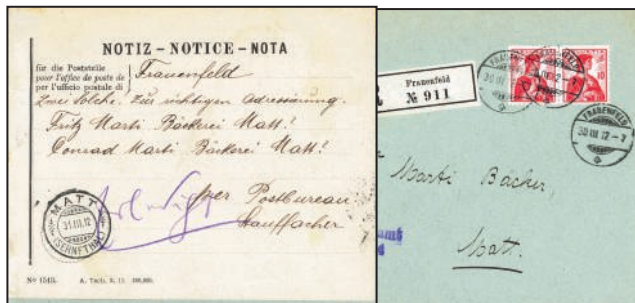 NOTIZ – NOTICE – NOTA
für die Poststelle
pour l'office de poste de
per l'ufficio postale di
Frauenfeld
Zwei Solche. Zur richtigen Adressierung.
Fritz Marti Bäckerei Matt!
Conrad Marti Bäckerei Matt!
per Postbureau
Stauffacher
MATT
31.III.12
(SERNFTHAL)
No 1545.
A. Tsch. S. 12.
Frauenfeld
№ 911
FRAUENFELD
30 III 12 – 7
10
FRAUENFELD
30 III 12 – 7
Marti Bäcker,
Matt.